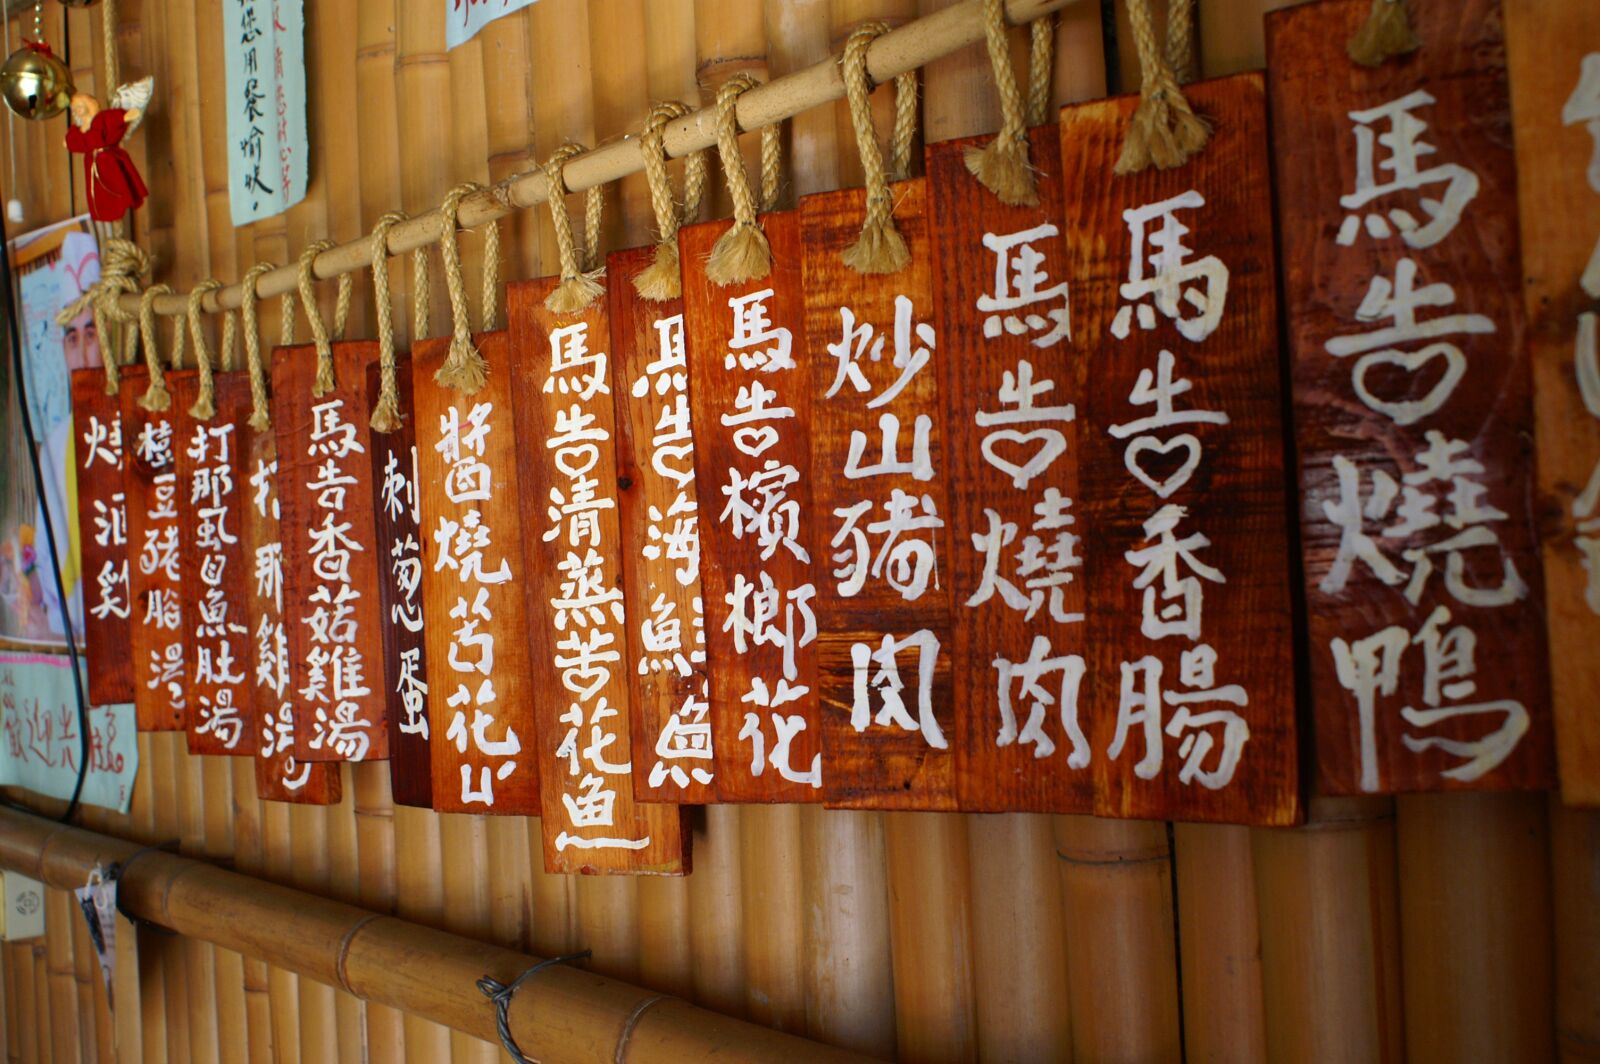 您用餐愉快。
燒酒雞
樹豆豬腳湯
打那虱目魚肚湯
馬告香菇雞湯
刺蔥蛋
醬燒苦花
馬告清蒸苦花魚
馬告海鱺魚
馬告檳榔花
炒山豬肉
馬告燒肉
馬告香腸
馬告燒鴨
歡迎光臨